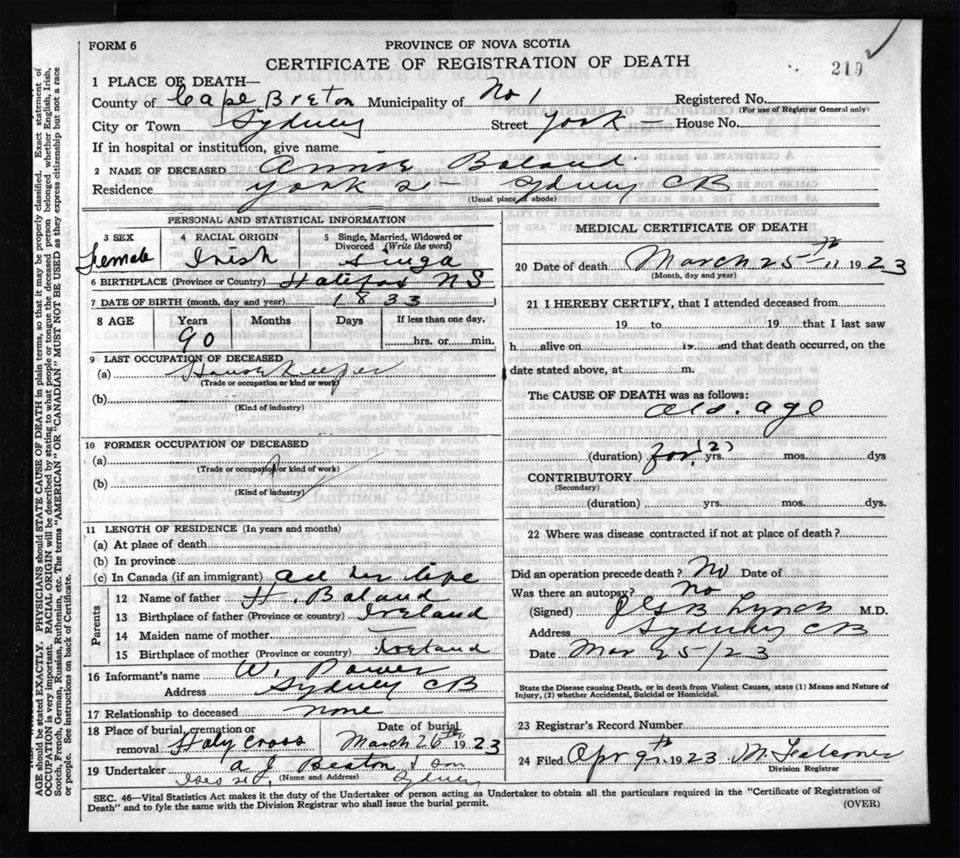 FORM 6
PROVINCE OF NOVA SCOTIA
CERTIFICATE OF REGISTRATION OF DEATH
219
1 PLACE OF DEATH—
County of Cape Breton Municipality of No 1 Registered No.
(For use of Registrar General only)
City or Town Sydney Street York House No.
If in hospital or institution, give name
2 NAME OF DECEASED Annie Boland
Residence York St Sydney CB
(Usual place of abode)
PERSONAL AND STATISTICAL INFORMATION
3 SEX 4 RACIAL ORIGIN 5 Single, Married, Widowed or Divorced (Write the word)
Female Irish
6 BIRTHPLACE (Province or Country) Halifax NS
7 DATE OF BIRTH (month, day and year) 1833
8 AGE Years Months Days If less than one day,
90 hrs. or min.
9 LAST OCCUPATION OF DECEASED
(a) House Keeper
(Trade or occupation or kind or work)
(b)
(Kind of industry)
10 FORMER OCCUPATION OF DECEASED
(a)
(Trade or occupation or kind of work)
(b)
(Kind of industry)
11 LENGTH OF RESIDENCE (In years and months)
(a) At place of death
(b) In province
(c) In Canada (if an immigrant) all her life
Parents
12 Name of father H. Boland
13 Birthplace of father (Province or country) Ireland
14 Maiden name of mother —
15 Birthplace of mother (Province or country) Ireland
16 Informant's name W. Power
Address Sydney CB
17 Relationship to deceased none
18 Place of burial, cremation or removal Holy Cross Date of burial March 26th 1923
19 Undertaker A J Beaton & Son
(Name and Address) Sydney
MEDICAL CERTIFICATE OF DEATH
20 Date of death March 25th 1923
(Month, day and year)
21 I HEREBY CERTIFY, that I attended deceased from
19 to 19 that I last saw
h alive on 19 and that death occurred, on the
date stated above, at m.
The CAUSE OF DEATH was as follows:
old. age
(duration) yrs. mos. dys
CONTRIBUTORY
(Secondary)
(duration) yrs. mos. dys.
22 Where was disease contracted if not at place of death?
Did an operation precede death? No Date of
Was there an autopsy? No
(Signed) J G B Lynch M.D.
Address Sydney CB
Date Mar 25/23
State the Disease causing Death, or in death from Violent Causes, state (1) Means and Nature of
Injury, (2) whether Accidental, Suicidal or Homicidal.
23 Registrar's Record Number
24 Filed Apr 9th 1923 M Falconer
Division Registrar
SEC. 46—Vital Statistics Act makes it the duty of the Undertaker or person acting as Undertaker to obtain all the particulars required in the "Certificate of Registration of
Death" and to fyle the same with the Division Registrar who shall issue the burial permit.
(OVER)
AGE should be stated EXACTLY. PHYSICIANS should STATE CAUSE OF DEATH in plain terms, so that it may be properly classified. Exact statement of
OCCUPATION is very important. RACIAL ORIGIN will be described by stating to what people or tongue the deceased person belonged whether English, Irish,
Scotch, French, German, Russian, Ruthenian, etc. The terms "AMERICAN" OR "CANADIAN" MUST NOT BE USED as they express citizenship but not a race
or people. See instructions on back of Certificate.